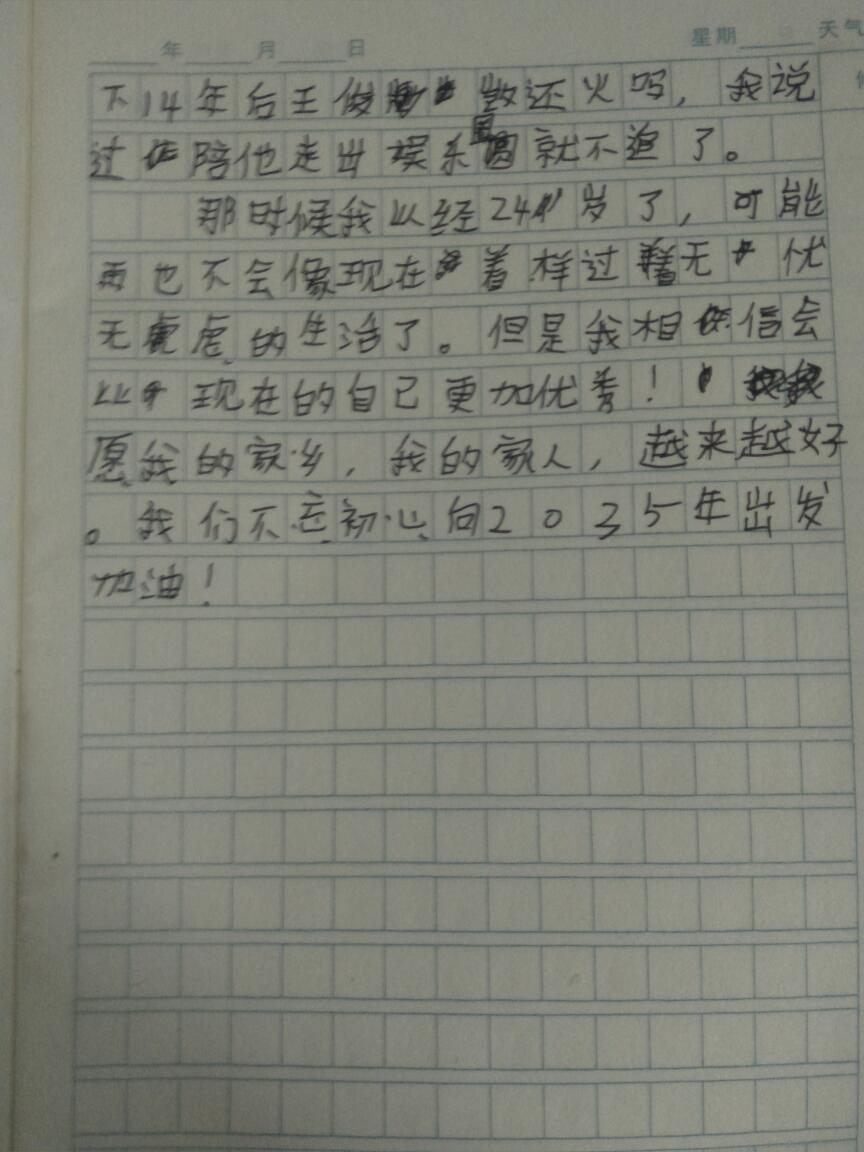 年 月 日 星期 天气
下14年后王俊还火吗，我说
过陪他走出娱乐圈就不追了。
那时候我以经24岁了，可能
再也不会像现在着样过着无优
无虑的生活了。但是我相信会
比现在的自己更加优秀！
愿我的家乡，我的家人，越来越好
。我们不忘初心向2035年出发
加油！